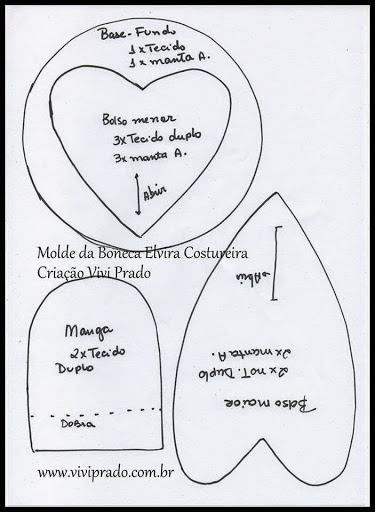 Base-Fundo
1xTecido
1xmanta A.
Bolso menor
3xTecido duplo
3xmanta A.
Abrir
Molde da Boneca Elvira Costureira
Criação Vivi Prado
Manga
2xTecido
Duplo
Dobra
Abrir
Bolso maior
2x no T. Duplo
2xmanta A.
www.viviprado.com.br